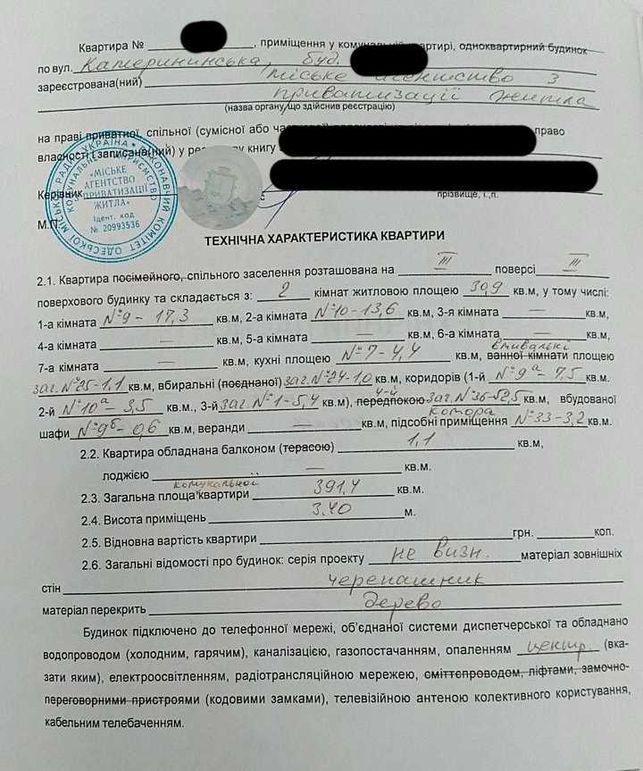 Квартира № , приміщення у комунальній квартирі, одноквартирний будинок
по вул. Катерининська, буд.
зареєстрована(ний) міське агентство з
приватизації житла
(назва органу, що здійснив реєстрацію)
на праві приватної, спільної (сумісної або право
власності (записана(ний) у реєстрову книгу
Керівник
прізвище, і.,п.
М.П.
УКРАЇНА • ВИКОНАВЧИЙ КОМІТЕТ ОДЕСЬКОЇ МІСЬКОЇ РАДИ
КОМУНАЛЬНЕ ПІДПРИЄМСТВО
«МІСЬКЕ
АГЕНТСТВО
ПРИВАТИЗАЦІЇ
ЖИТЛА»
Ідент. код
№ 20993536
ТЕХНІЧНА ХАРАКТЕРИСТИКА КВАРТИРИ
2.1. Квартира посімейного, спільного заселення розташована на III поверсі III
поверхового будинку та складається з: 2 кімнат житловою площею 30,9 кв.м, у тому числі:
1-а кімната №9 - 17,3 кв.м, 2-а кімната №10 - 13,6 кв.м, 3-я кімната — кв.м,
4-а кімната — кв.м, 5-а кімната — кв.м, 6-а кімната — кв.м,
7-а кімната — кв.м, кухні площею №7 - 4,4 кв.м, ванної кімнати площею
заг.№25-1,1 кв.м, вбиральні (поєднаної) заг.№24-1,0 кв.м, коридорів (1-й №9а - 7,5 кв.м.
2-й №10а - 3,5 кв.м., 3-й заг.№1-5,4 кв.м), передпокою 4-й заг.№36-52,5 кв.м, вбудованої
шафи №9б - 0,6 кв.м, веранди — кв.м, підсобні приміщення комора №33-3,2 кв.м.
2.2. Квартира обладнана балконом (терасою) 1,1 кв.м,
лоджією — кв.м.
2.3. Загальна площа комунальної квартири 391,4 кв.м.
2.4. Висота приміщень 3,40 м.
2.5. Відновна вартість квартири грн. коп.
2.6. Загальні відомості про будинок: серія проекту не визн. матеріал зовнішніх
стін черепашник
матеріал перекрить дерево
Будинок підключено до телефонної мережі, об'єднаної системи диспетчерської та обладнано
водопроводом (холодним, гарячим), каналізацією, газопостачанням, опаленням центр. (вка-
зати яким), електроосвітленням, радіотрансляційною мережею, сміттєпроводом, ліфтами, замочно-
переговорними пристроями (кодовими замками), телевізійною антеною колективного користування,
кабельним телебаченням.